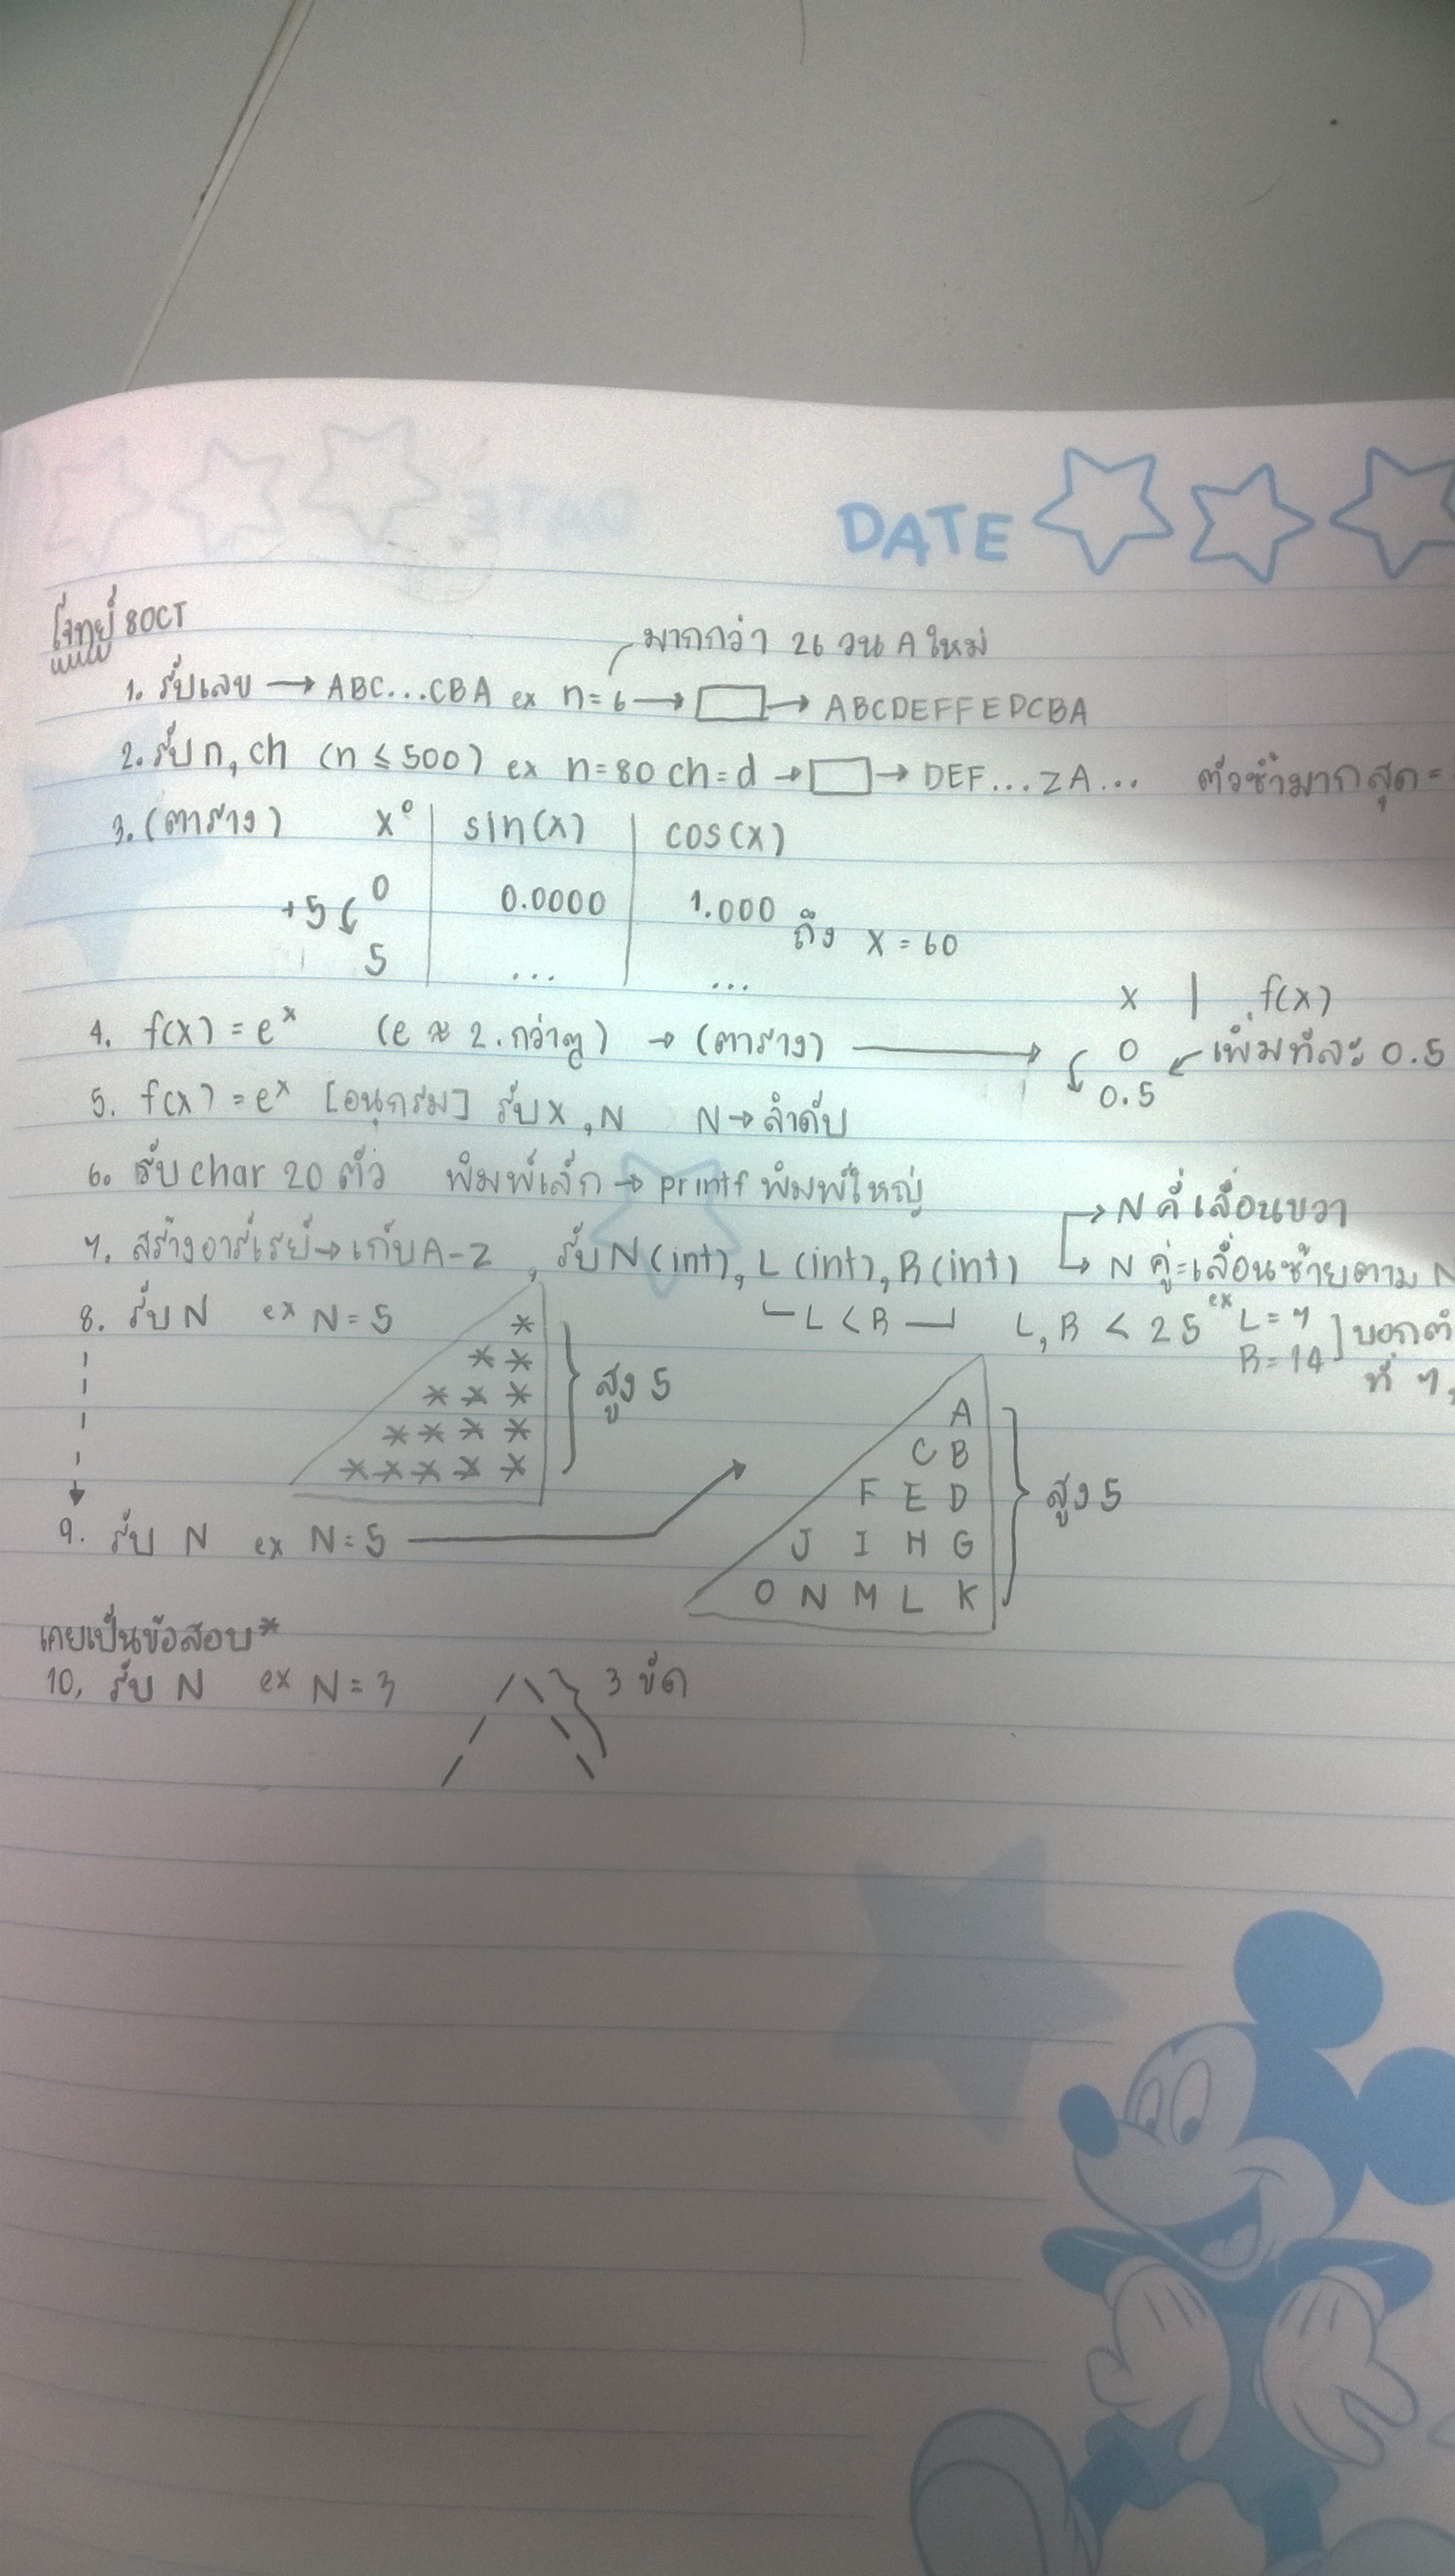 DATE
โจทย์ 8OCT
มากกว่า 26 วน A ใหม่
1. รับเลข → ABC...CBA ex n=6 → → ABCDEFFEDCBA
2. รับ n, ch (n ≤ 500) ex n=80 ch=d → → DEF...ZA... ตัวซ้ำมากสุด =
3. (ตาราง) x° | sin(x) | cos(x)
+5 0 0.0000 1.000 ถึง x = 60
5 ... ...
x | f(x)
4. f(x) = e^x (e ≈ 2.กว่าๆ) → (ตาราง) → 0 ← เพิ่มทีละ 0.5
0.5
5. f(x) = e^x [อนุกรม] รับ x, N N → ลำดับ
6. รับ char 20 ตัว พิมพ์เล็ก → printf พิมพ์ใหญ่
→ N คี่ เลื่อนขวา
7. สร้างอาร์เรย์ → เก็บ A-Z , รับ N (int), L (int), R (int) → N คู่ = เลื่อนซ้ายตาม N
L < R L, R < 25 ex L = 7 ] บอกตำ
R = 14 ที่ 7,
8. รับ N ex N = 5
*
* *
* * *
* * * *
* * * * *
สูง 5
9. รับ N ex N = 5
A
C B
F E D
J I H G
O N M L K
สูง 5
เคยเป็นข้อสอบ*
10. รับ N ex N = 3 / \ 3 ขีด
/ \
/ \